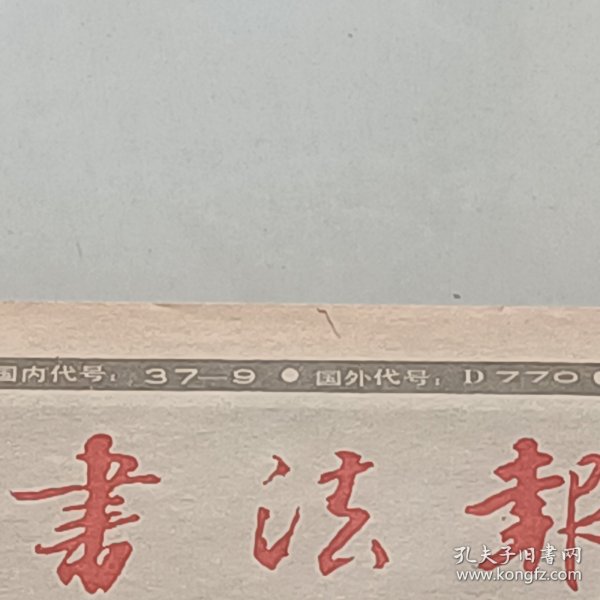 国内代号：37—9 ● 国外代号：D 770 ●
書法報
孔夫子旧書网
www.kongfz.com